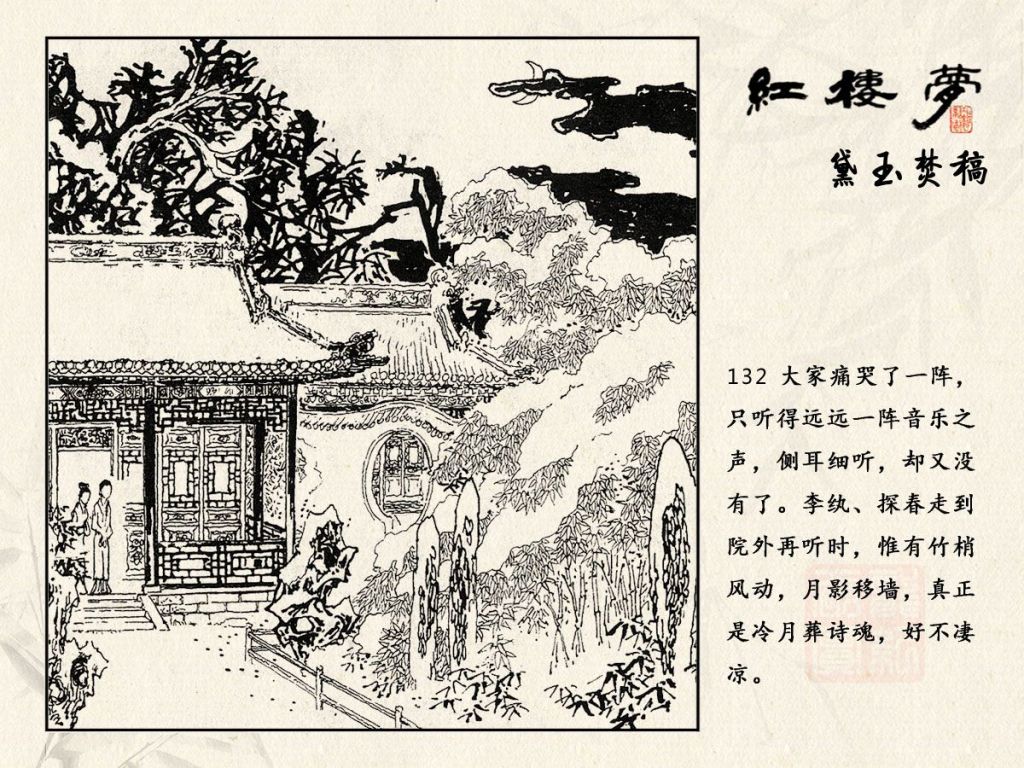 紅樓夢
黛玉焚稿
132 大家痛哭了一阵，
只听得远远一阵音乐之
声，侧耳细听，却又没
有了。李纨、探春走到
院外再听时，惟有竹梢
风动，月影移墙，真正
是冷月葬诗魂，好不凄
凉。